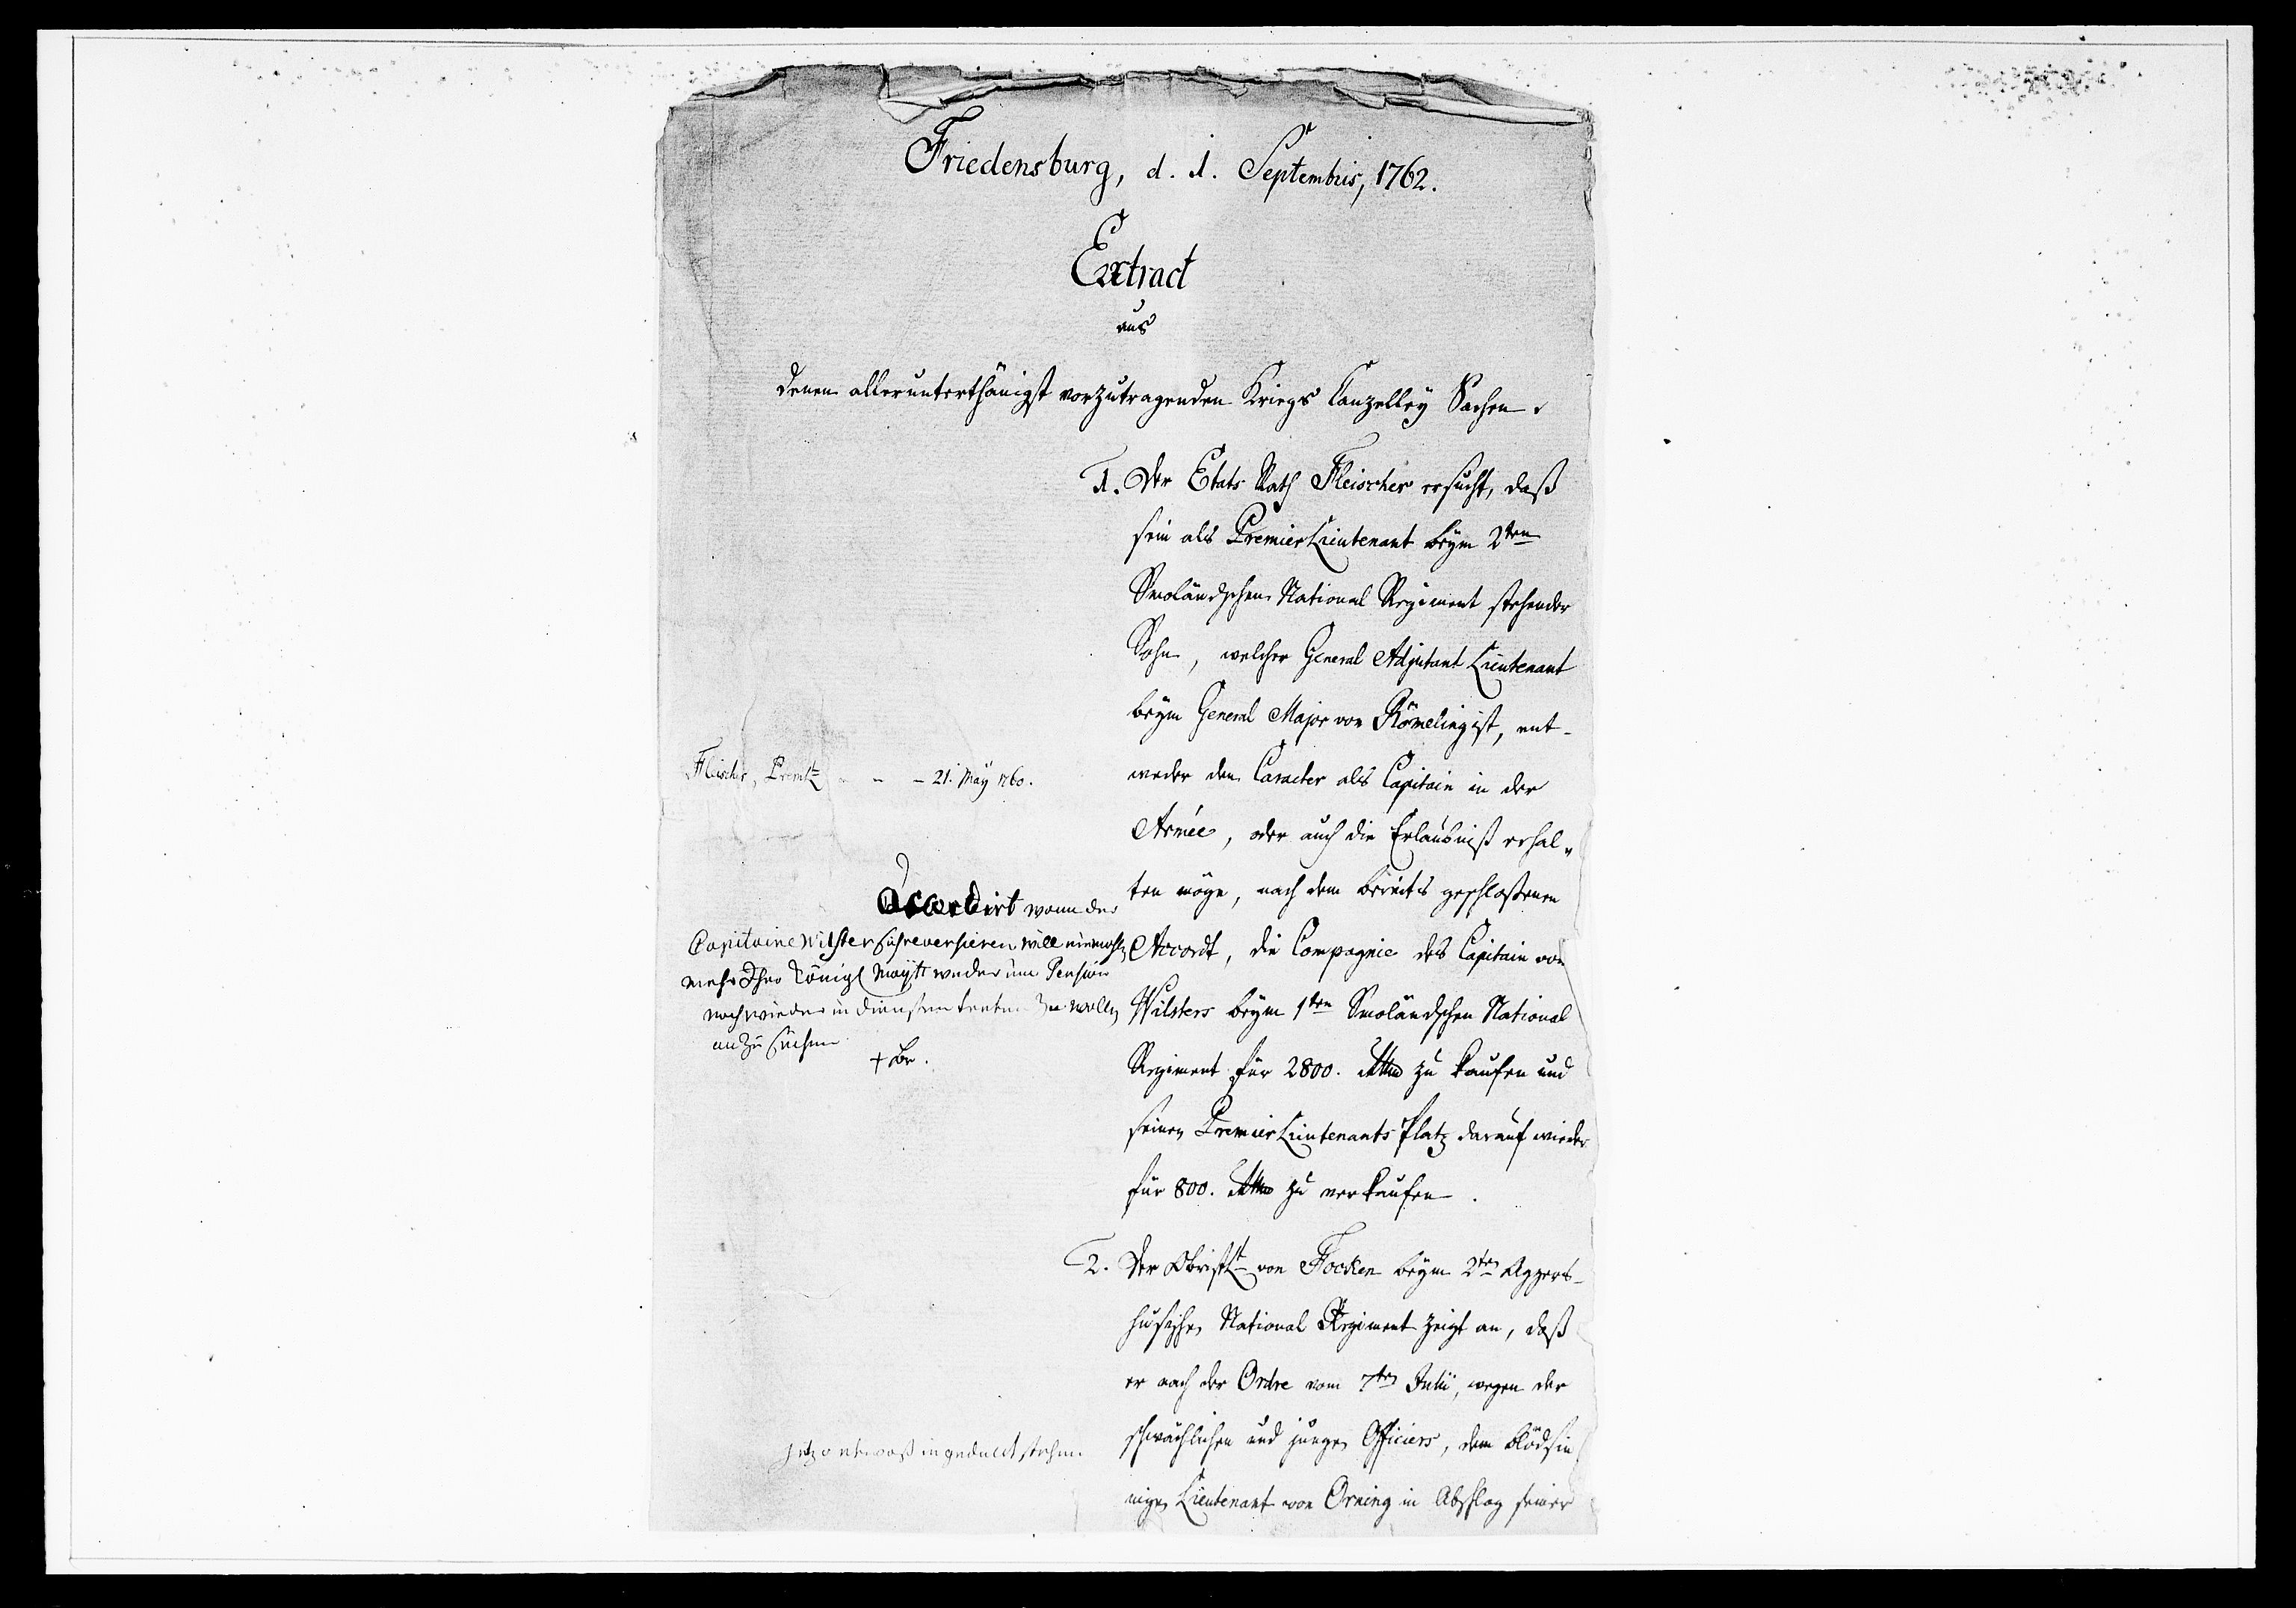 Friedensburg, d. 1. Septembris, 1762.
Extract
aus
denen allerunterthänigst vorzutragenden Kriegs Canzelley Sachen.
1. Der Etats Rath Fleischer ersucht, daß
sein als Premier Lieutenant beym 2ten
Smoländschen National Regiment stehender
Sohn, welcher General Adjutant Lieutenant
beym General Major von Römeling ist, ent-
weder den Caracter als Capitain in der
Armée, oder auch die Erlaubniß erhal-
ten möge, nach dem bereits geschloßenen
Accordt, die Compagnie des Capitain von
Wilsters beym 1ten Smoländschen National
Regiment für 2800. zu kaufen und
seinen Premier Lieutenants Platz darauf wieder
für 800. zu verkaufen.
Fleischer, Premlt - - - 21. May 1760.
Accordirt wann der
Capitaine Wilster sich reversieren will niemahls
mehr Ihro Königl Maytt weder um Pension
noch wieder in Diensten treten zu wollen
an zu suchen
2. Der Obristlt von Focken beym 2ten Aggers-
husischen National Regiment zeigt an, daß
er nach der Ordre vom 7ten Julii, wegen der
schwächlichen und jungen Officiers, dem blödsin
nigen Lieutenant von Orning in Abschlag seiner
jetzo etwaß in gedult stehen.